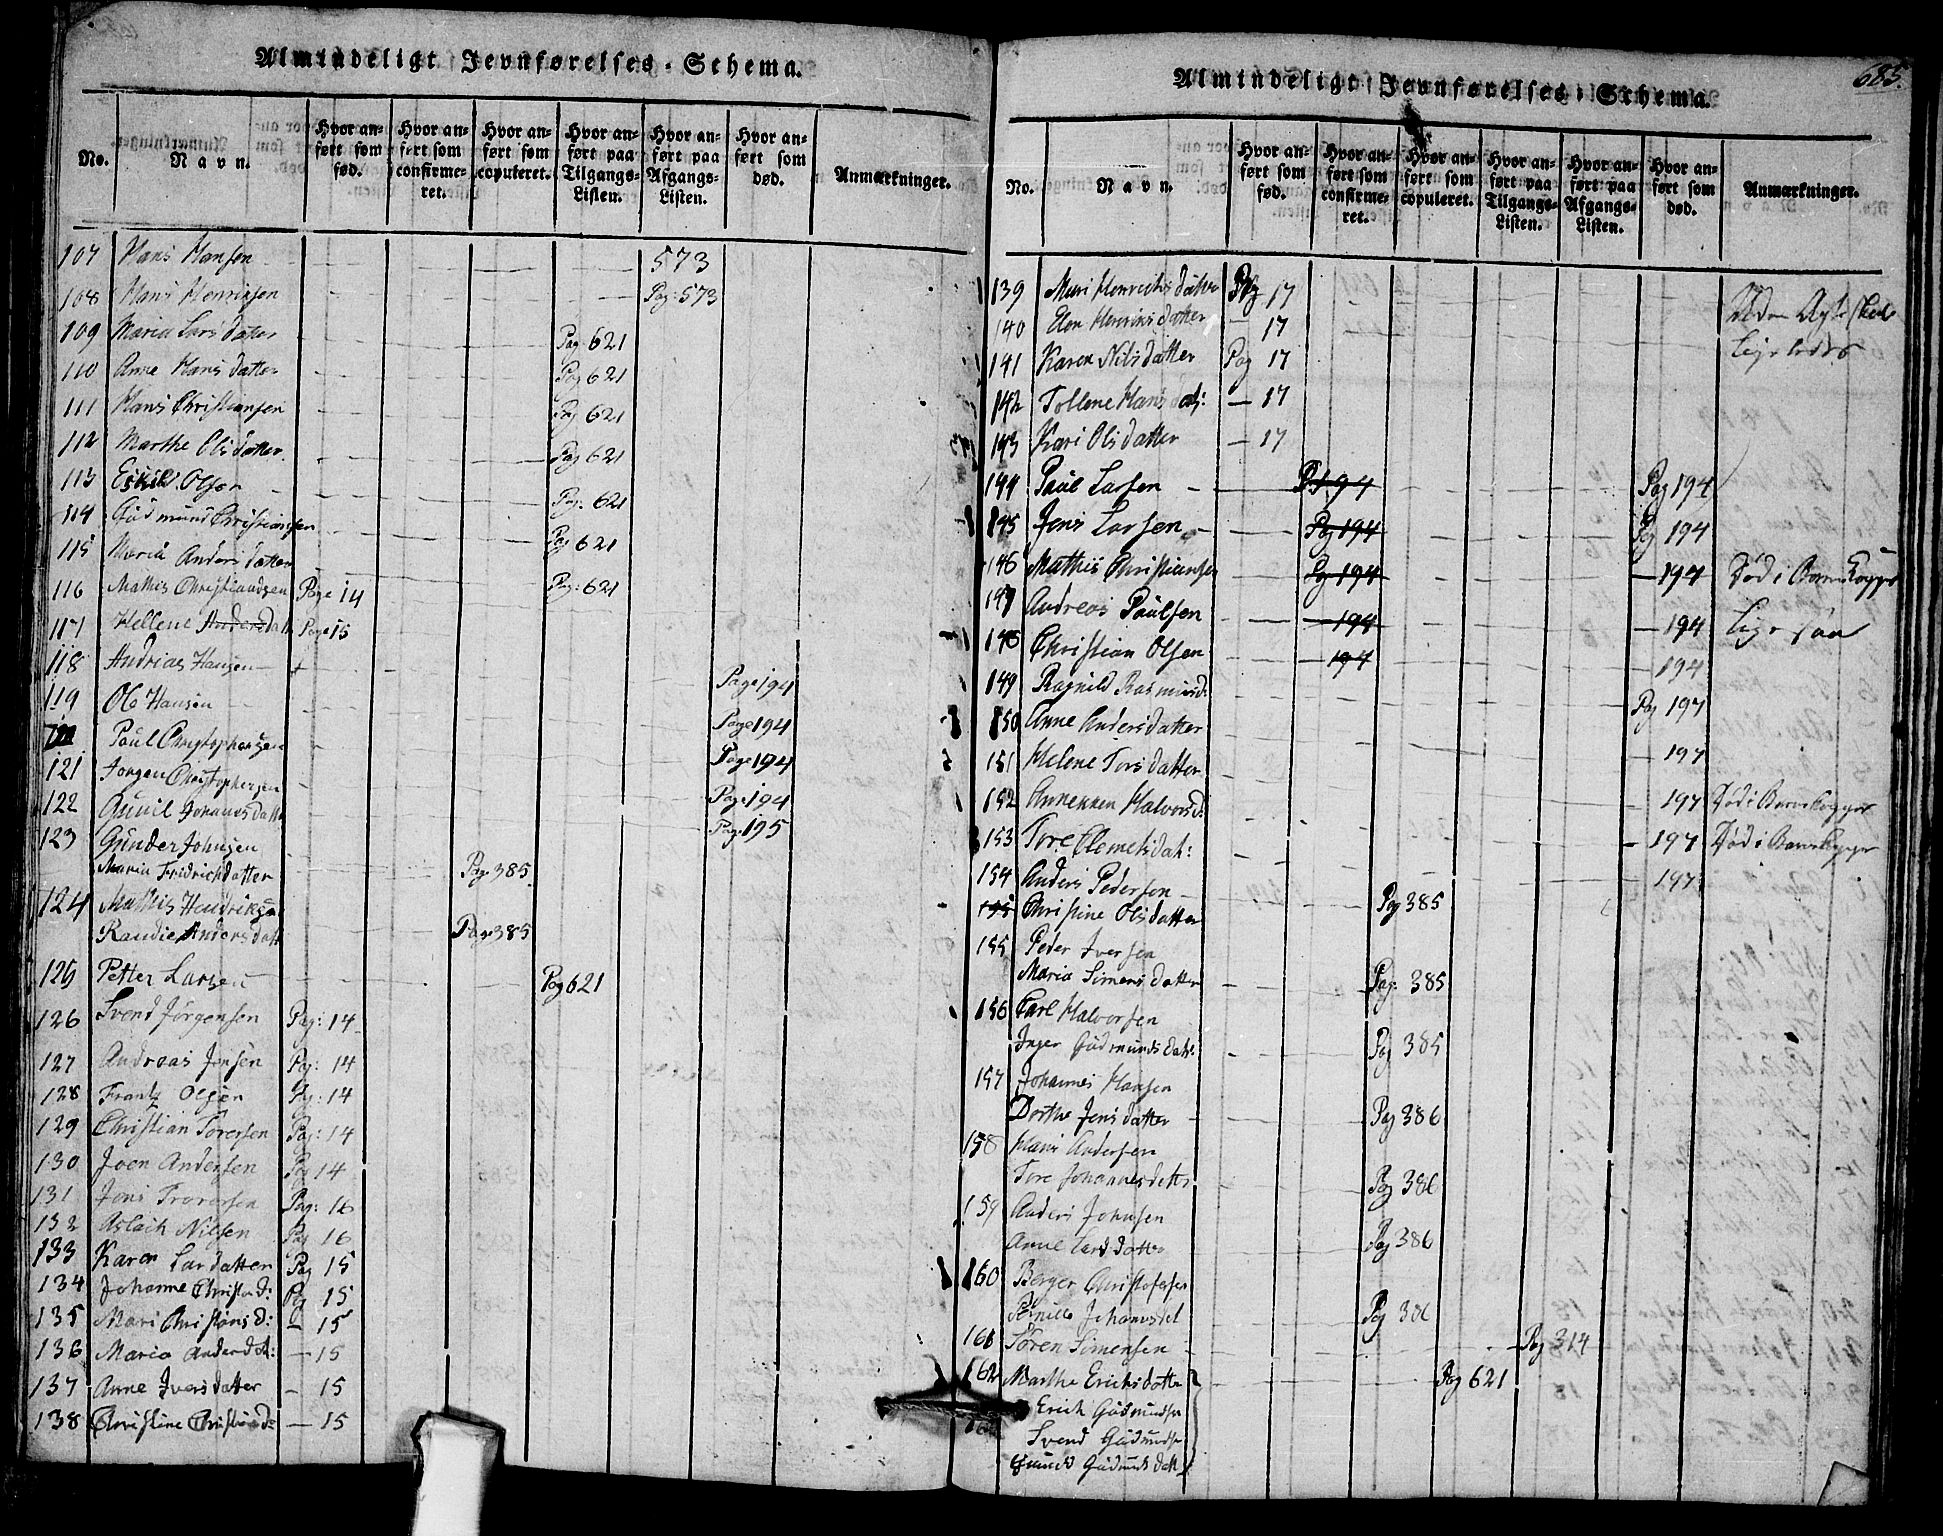 Almindeligt Jevnførelses-Schema.
No.
Navn.
Hvor anført som fød.
Hvor anført som confirmeret.
Hvor anført som copuleret.
Hvor anført paa Tilgangs-Listen.
Hvor anført paa Afgangs-Listen.
Hvor anført som død.
Anmærkninger.
107 Hans Hansen 573
108 Hans Henriksen Pag: 573
109 Maria Larsdatter Pag 621
110 Anne Hansdatter Pag 621
111 Hans Christiansen Pag 621
112 Marthe Olsdatter Pag 621
113 Eskild Olsen Pag: 621
114 Gudmund Christiansen Pag 621
115 Maria Andersdatter Pag: 621
116 Mathis Christiansen Page 14
117 Hellene Andersdatt Page 15
118 Andrias Hansen Page 194
119 Ole Hansen Page 194
120 Paul Christophersen Page 194
121 Jorgen Christophersen Page 194
122 Gunil Johannesdatt Page 195
123 Gunder Johnsen
Maria Fridrichdatter Pag. 385
124 Mathis Hendriksen
Randie Andersdatt Page 385
125 Petter Larsen Pag 621
126 Svend Jørgensen Pag: 14
127 Andreas Jensen Pag: 14
128 Frantz Olsen Pag: 14
129 Christian Torersen Pag: 14
130 Joen Andersen Pag 14
131 Jens Pag: 16
132 Aslach Nilsen Pag 16
133 Karen Larsdatter Pag 15
134 Johanne Christ d: Pag 15
135 Mari Christians d: - 15
136 Maria Andersdat: - 15
137 Anne Iversdatter - 15
138 Christine Christians d: - 15
685.
Almindeligt Jevnførelses-Schema.
No.
Navn.
Hvor anført som fød.
Hvor anført som confirmeret.
Hvor anført som copuleret.
Hvor anført paa Tilgangs-Listen.
Hvor anført paa Afgangs-Listen.
Hvor anført som død.
Anmærkninger.
139 Mari Henrichsdatter Pag 17
140 Elen Henriksdatter - 17
141 Karen Nilsdatter Pag 17
142 Tollene Hansdat: - 17
143 Kari Olsdatter - 17
144 Paul Larsen P. 194 Pag 194
145 Jens Larsen Pag 194 Pag 194
146 Mathis Christiansen Pag 194 - 194 Død i Barnekopper
147 Andreas Paulsen - 194 - 194
148 Christian Olsen 194 194
149 Ragnild Rasmusd: Pag 197
150 Anne Andersdatter 197
151 Helene Torsdatter 197 Død i Barnekopper
152 Annekken Halvorsd: 197 Død i Barnekopper
153 Tore Clemetsdat: 197
154 Anders Pedersen Pag 385
Christine Olsdatter
155 Peder Iversen
Maria Simensdatter Pag. 385
156 Carl Halvorsen
Inger Gudmundsdat: Pag 385
157 Johannes Hansen
Dorthe Jensdatter Pag 386
158 Hans Andersen
Tore Johannesdatter Pag 386
159 Anders Johnsen
Anne Larsdatter Pag 386
160 Berger Christofersen
Pernille Johannsdat Pag 386
161 Søren Simensen Pag 314
162 Marthe Ericksdatter Pag 621
Erich Gudmundsen
Svend Gudmundsen
Gudmundsdatt